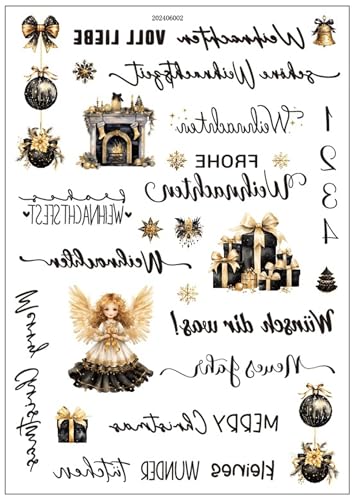 202406002
Weihnachten VOLL LIEBE
schöne Weihnachtszeit
Weihnachten
1
2
3
4
FROHE
Weihnachten
Frohes
WEIHNACHTSFEST
Weihnachten
Wünsch dir was!
Merry Christmas
Neues Jahr
MERRY Christmas
kleines WUNDER Tütchen